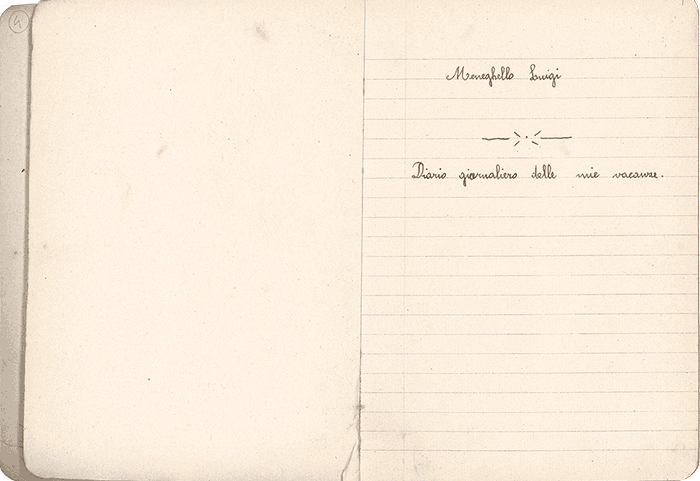 4
Meneghello Luigi
Diario giornaliero delle mie vacanze.